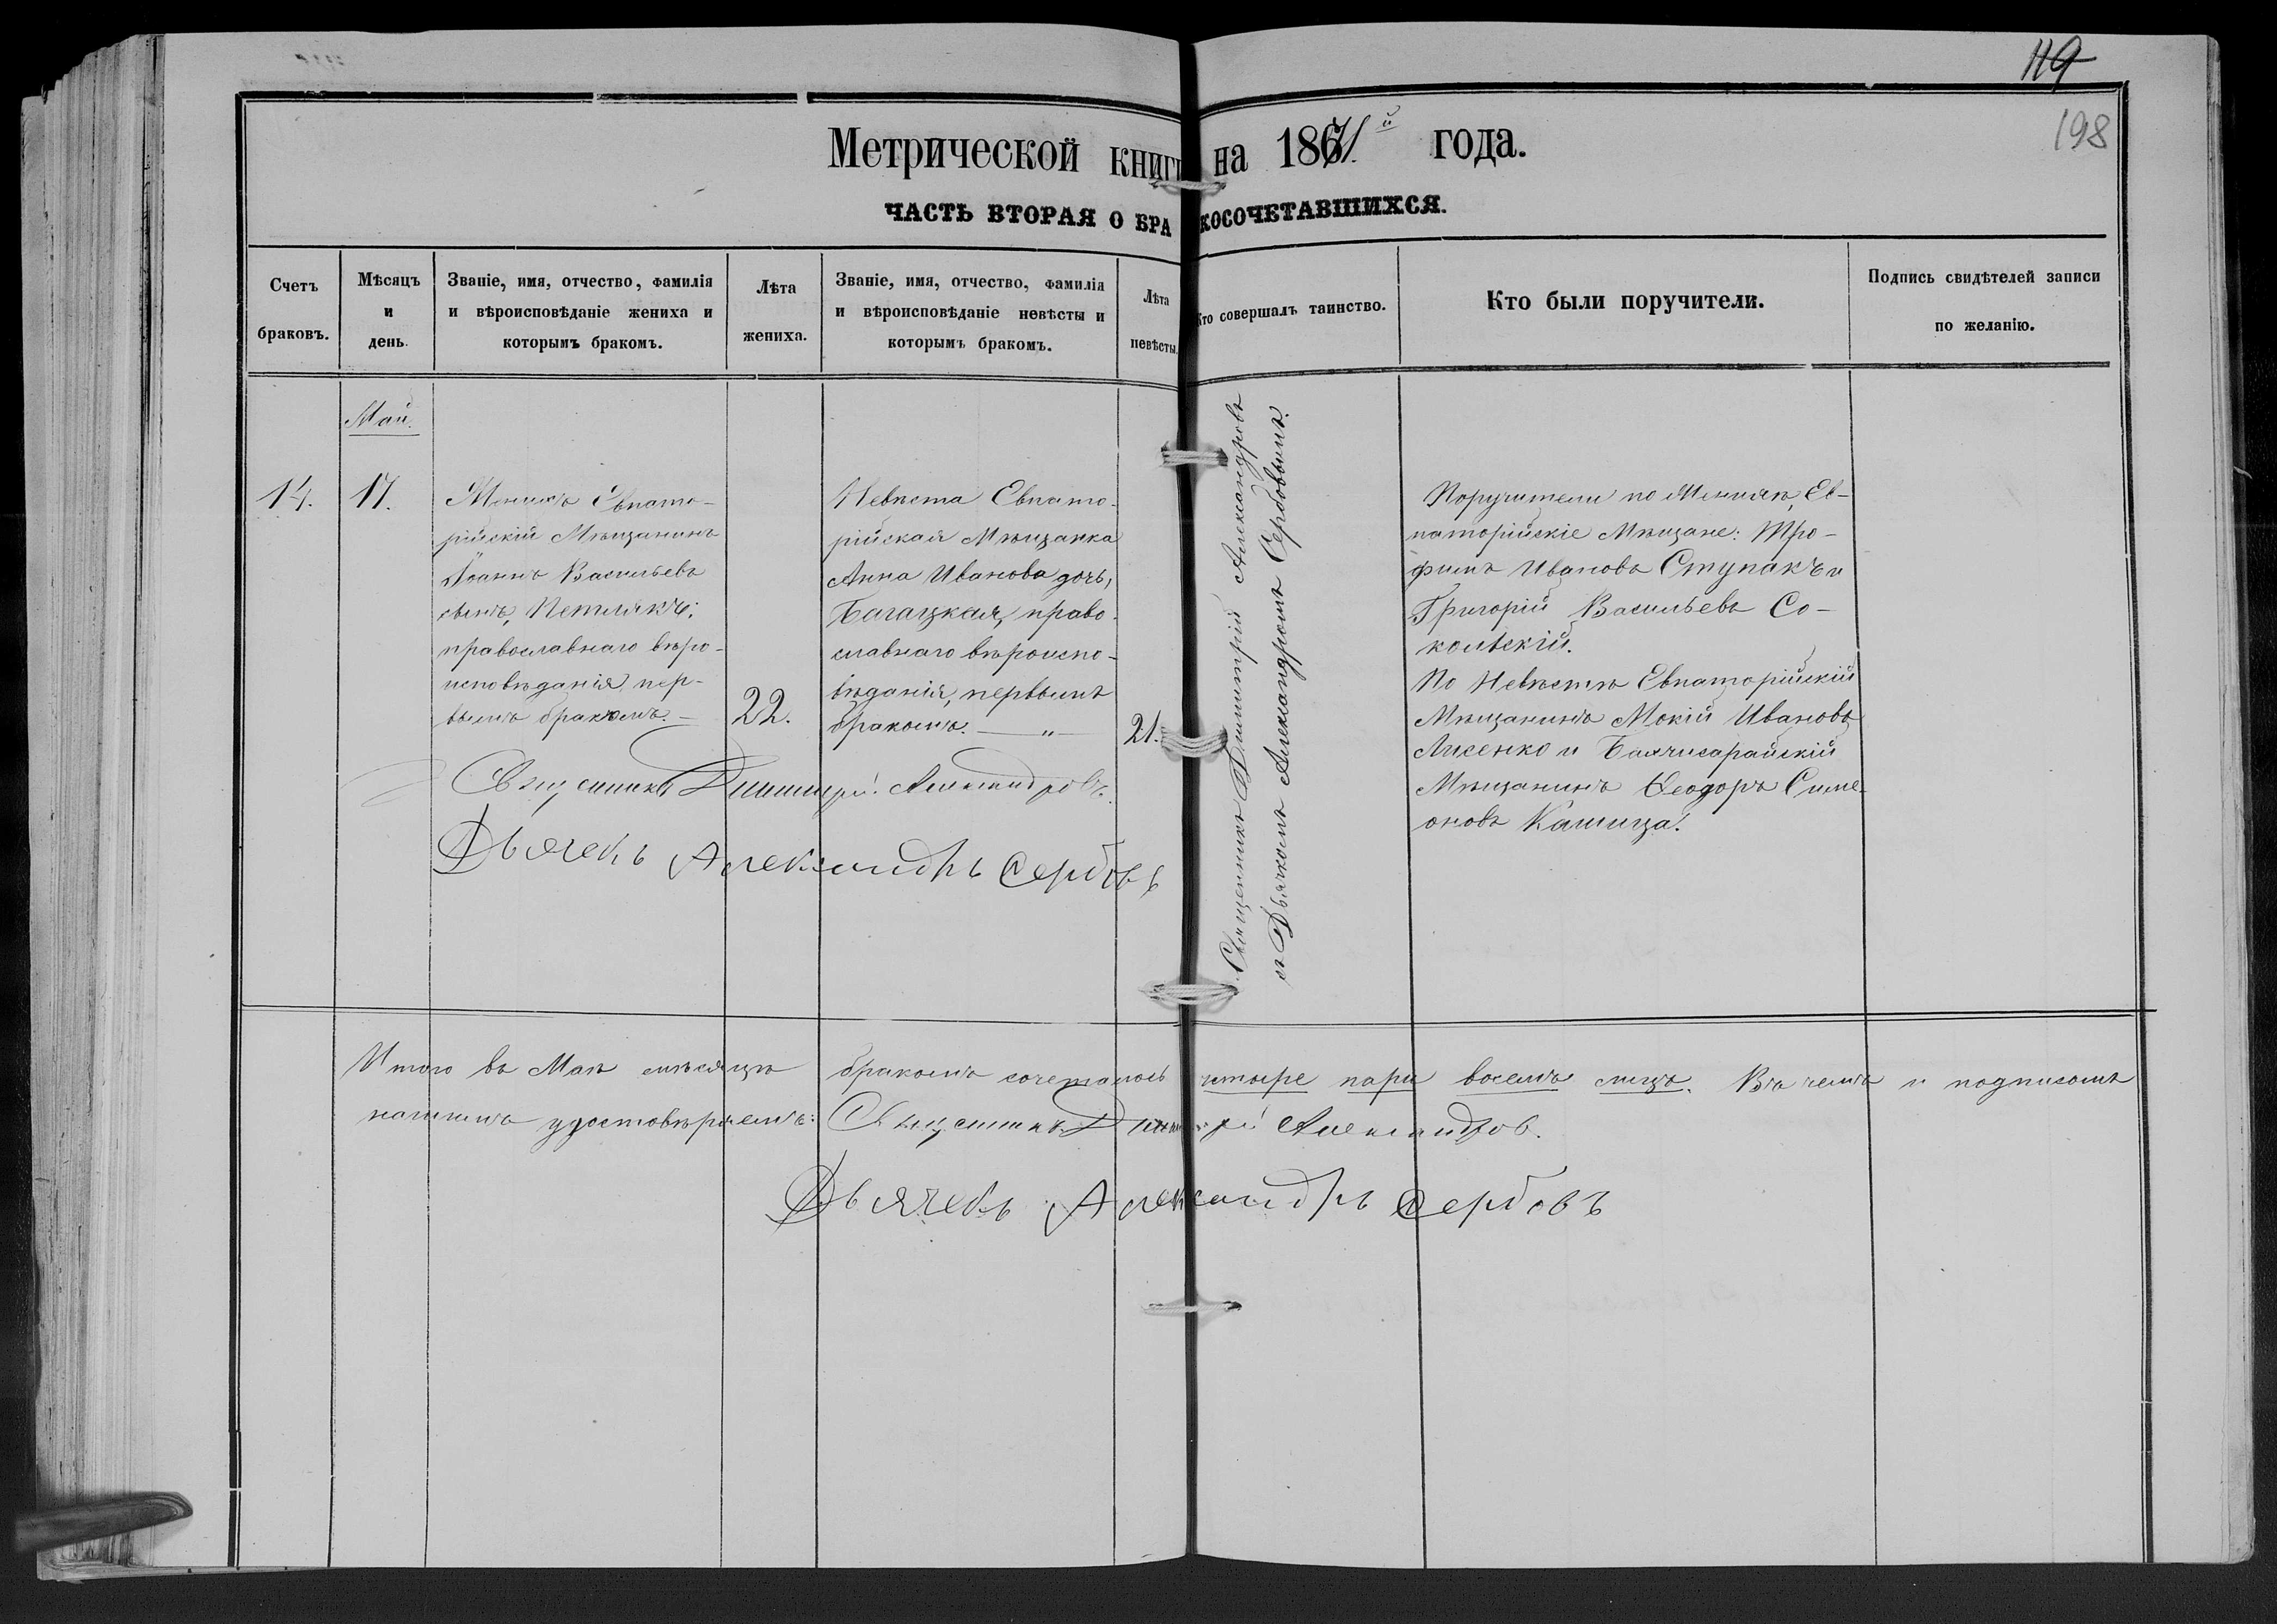 119
198
Метрической книги на 1871й года.
ЧАСТЬ ВТОРАЯ О БРАКОСОЧЕТАВШИХСЯ.
Счетъ браковъ.
Мѣсяцъ и день.
Званіе, имя, отчество, фамилія
и вѣроисповѣданіе жениха и
которымъ бракомъ.
Лѣта жениха.
Званіе, имя, отчество, фамилія
и вѣроисповѣданіе невѣсты и
которымъ бракомъ.
Лѣта невѣсты.
Кто совершалъ таинство.
Кто были поручители.
Подпись свидѣтелей записи
по желанію.
Май.
14.
17.
Женихъ Евпато-
рійскій Мѣщанинъ
Іоаннъ Васильевъ
сынъ, Петлякъ;
православнаго вѣро-
исповѣданія, пер-
вымъ бракомъ. —
22.
Невѣста Евпато-
рійская Мѣщанка
Анна Иванова дочь,
Багацкая, право-
славнаго вѣроиспо-
вѣданія, первымъ
бракомъ. — " —
21.
Священникъ Димитрій Александровъ
съ Дьячкомъ Александромъ Сербовымъ.
Поручители по Женихѣ, Ев-
паторійскіе Мѣщане: Тро-
фимъ Ивановъ Ступакъ и
Григорій Васильевъ Со-
кольскій.
По Невѣстѣ Евпаторійскій
Мѣщанинъ Мокій Ивановъ
Лисенко и Бахчисарайскій
Мѣщанинъ Ѳеодоръ Симе-
оновъ Капица.
Священникъ Димитрій Александровъ.
Дьячекъ Александръ Сербовъ
Итого въ Маѣ мѣсяцѣ бракомъ сочеталось четыре пары восемь лицъ. Въ чемъ и подписомъ
нашимъ удостовѣряемъ: Священникъ Димитрій Александров.
Дьячекъ Александръ Сербовъ